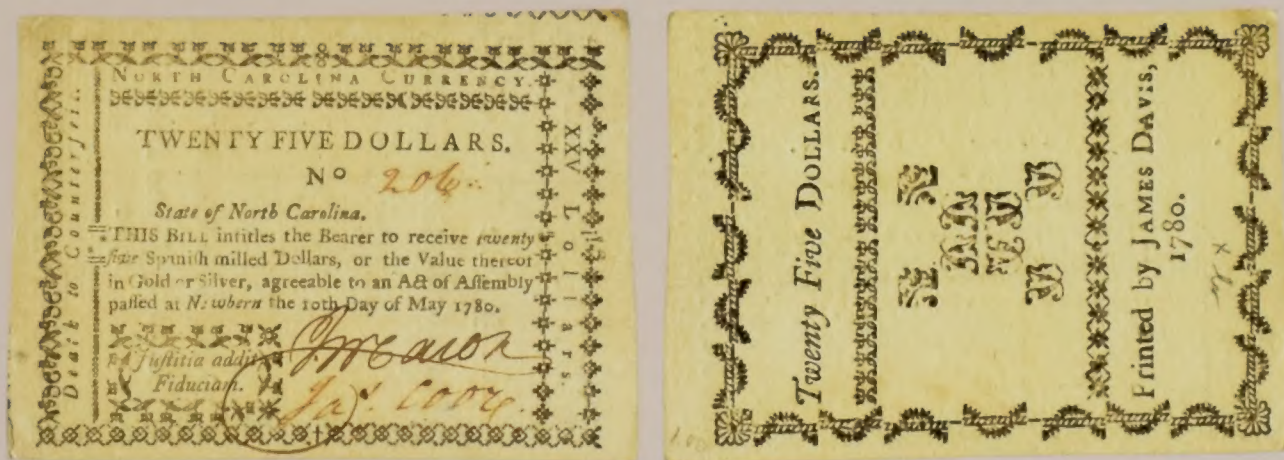 NORTH CAROLINA CURRENCY.
TWENTY FIVE DOLLARS.
No 206
State of North Carolina.
THIS BILL intitles the Bearer to receive twenty
five Spanish milled Dollars, or the Value thereof
in Gold or Silver, agreeable to an Act of Assembly
passed at Newbern the 10th Day of May 1780.
Justitia addit
Fiduciam.
Death to Counterfeit.
XXV Dollars.
Twenty Five DOLLARS.
Printed by JAMES DAVIS,
1780.